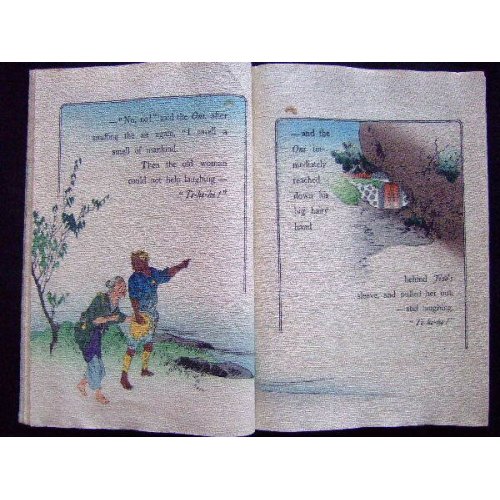 —"No, no!" said the Oni, after
snuffing the air again, "I smell a
smell of mankind.
Then the old woman
could not help laughing —
"Te-he-he!"
— and the
Oni im-
mediately
reached
down his
big hairy
hand
behind Jizō's
sleeve, and pulled her out,
— still laughing,
"Te-he-he!"